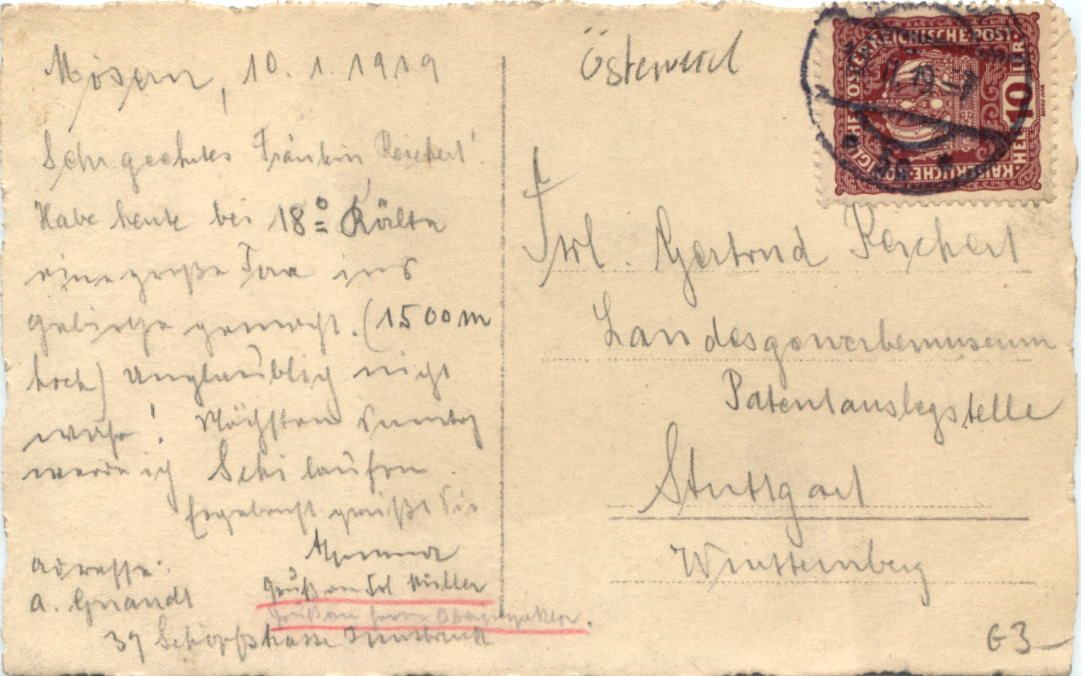 Mösern, 10.1.1919
Sehr geehrtes Fräulein Reichert!
Habe heute bei 18° Kälte
eine große Tour ins
Gebirge gemacht. (1500 m
hoch) Unglaublich nicht
wahr! Nächsten Sonntag
werde ich Schi laufen.
Ergebenst grüßt Sie
Adresse:
A. Gnandt
Gruß an Frl Müller
Gruß an Herrn
39 Schöpfstrasse Innsbruck
Österreich
KAISERLICHE KÖNIGLICHE ÖSTERREICHISCHE POST
10 HELLER
Frl. Gertrud Reichert
Landesgewerbemuseum
Patentauslegstelle
Stuttgart
Württemberg
G3